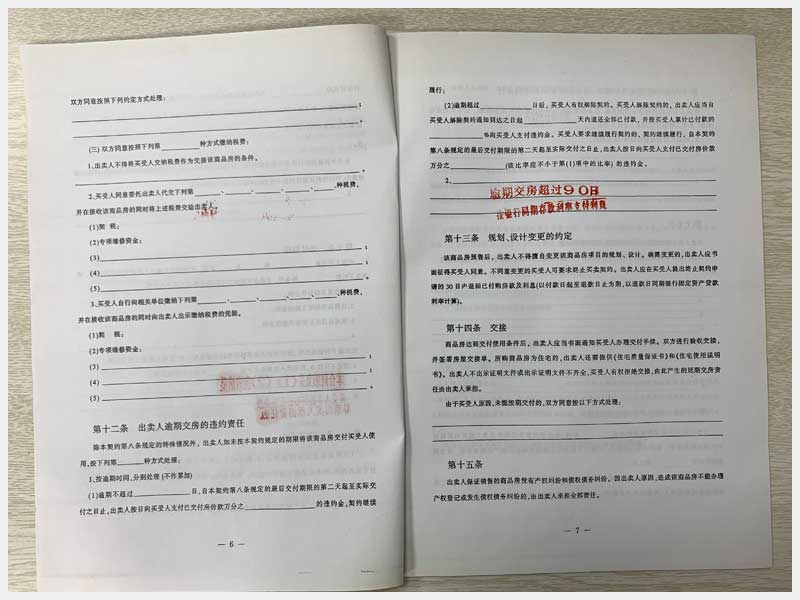 双方同意按照下列约定方式处理：
；
。
(三) 双方同意按照下列第________种方式缴纳税费：
1、出卖人不得将买受人交纳税费作为交接该商品房的条件。
。
2、买受人同意委托出卖人代交下列第______、______、______、______、______种税费，
并在接收该商品房的同时将上述税费交给出卖人。
(1)契　税；
(2)专项维修资金；
(3)；
(4)；
(5)。
3、买受人自行向相关单位缴纳下列第______、______、______、______、______种税费，
并在接收该商品房的同时向出卖人出示缴纳税费的凭据。
(1)契　税；
(2)专项维修资金；
(3)；
(4)；
(5)。
第十二条　出卖人逾期交房的违约责任
除本契约第八条规定的特殊情况外，出卖人如未按本契约规定的期限将该商品房交付买受人使
用，按下列第______种方式处理：
1、按逾期时间，分别处理 (不作累加)
(1)逾期不超过________日，自本契约第八条规定的最后交付期限的第二天起至实际交
付之日止，出卖人按日向买受人支付已交付房价款万分之________的违约金，契约继续
— 6 —
履行；
(2)逾期超过________日后，买受人有权解除契约。买受人解除契约的，出卖人应当自
买受人解除契约通知到达之日起________天内退还全部已付款，并按买受人累计已付款的
________%向买受人支付违约金。买受人要求继续履行契约的，契约继续履行，自本契约
第八条规定的最后交付期限的第二天起至实际交付之日止，出卖人按日向买受人支付已交付房价款
万分之________(该比率应不小于第(1)项中的比率) 的违约金。
2、
逾期交房超过90日
按银行同期存款利率支付利息
第十三条　规划、设计变更的约定
该商品房预售后，出卖人不得擅自变更该商品房项目的规划、设计。确需变更的，出卖人应书
面征得买受人同意。不同意变更的买受人可要求终止买卖契约。出卖人应在买受人提出终止契约申
请的 30 日内退回已付购房款及利息(以付款日起至退款日止为期，以退款日同期银行固定资产贷款
利率计算)。
第十四条　交接
商品房达到交付使用条件后，出卖人应当书面通知买受人办理交付手续。双方进行验收交接，
并签署房屋交接单。所购商品房为住宅的，出卖人还需提供《住宅质量保证书》和《住宅使用说明
书》。出卖人不出示证明文件或出示证明文件不齐全，买受人有权拒绝交接，由此产生的延期交房责
任由出卖人承担。
由于买受人原因，未能按期交付的，双方同意按以下方式处理：
。
第十五条
出卖人保证销售的商品房没有产权纠纷和债权债务纠纷，因出卖人原因，造成该商品房不能办理
产权登记或发生债权债务纠纷的，由出卖人承担全部责任。
— 7 —